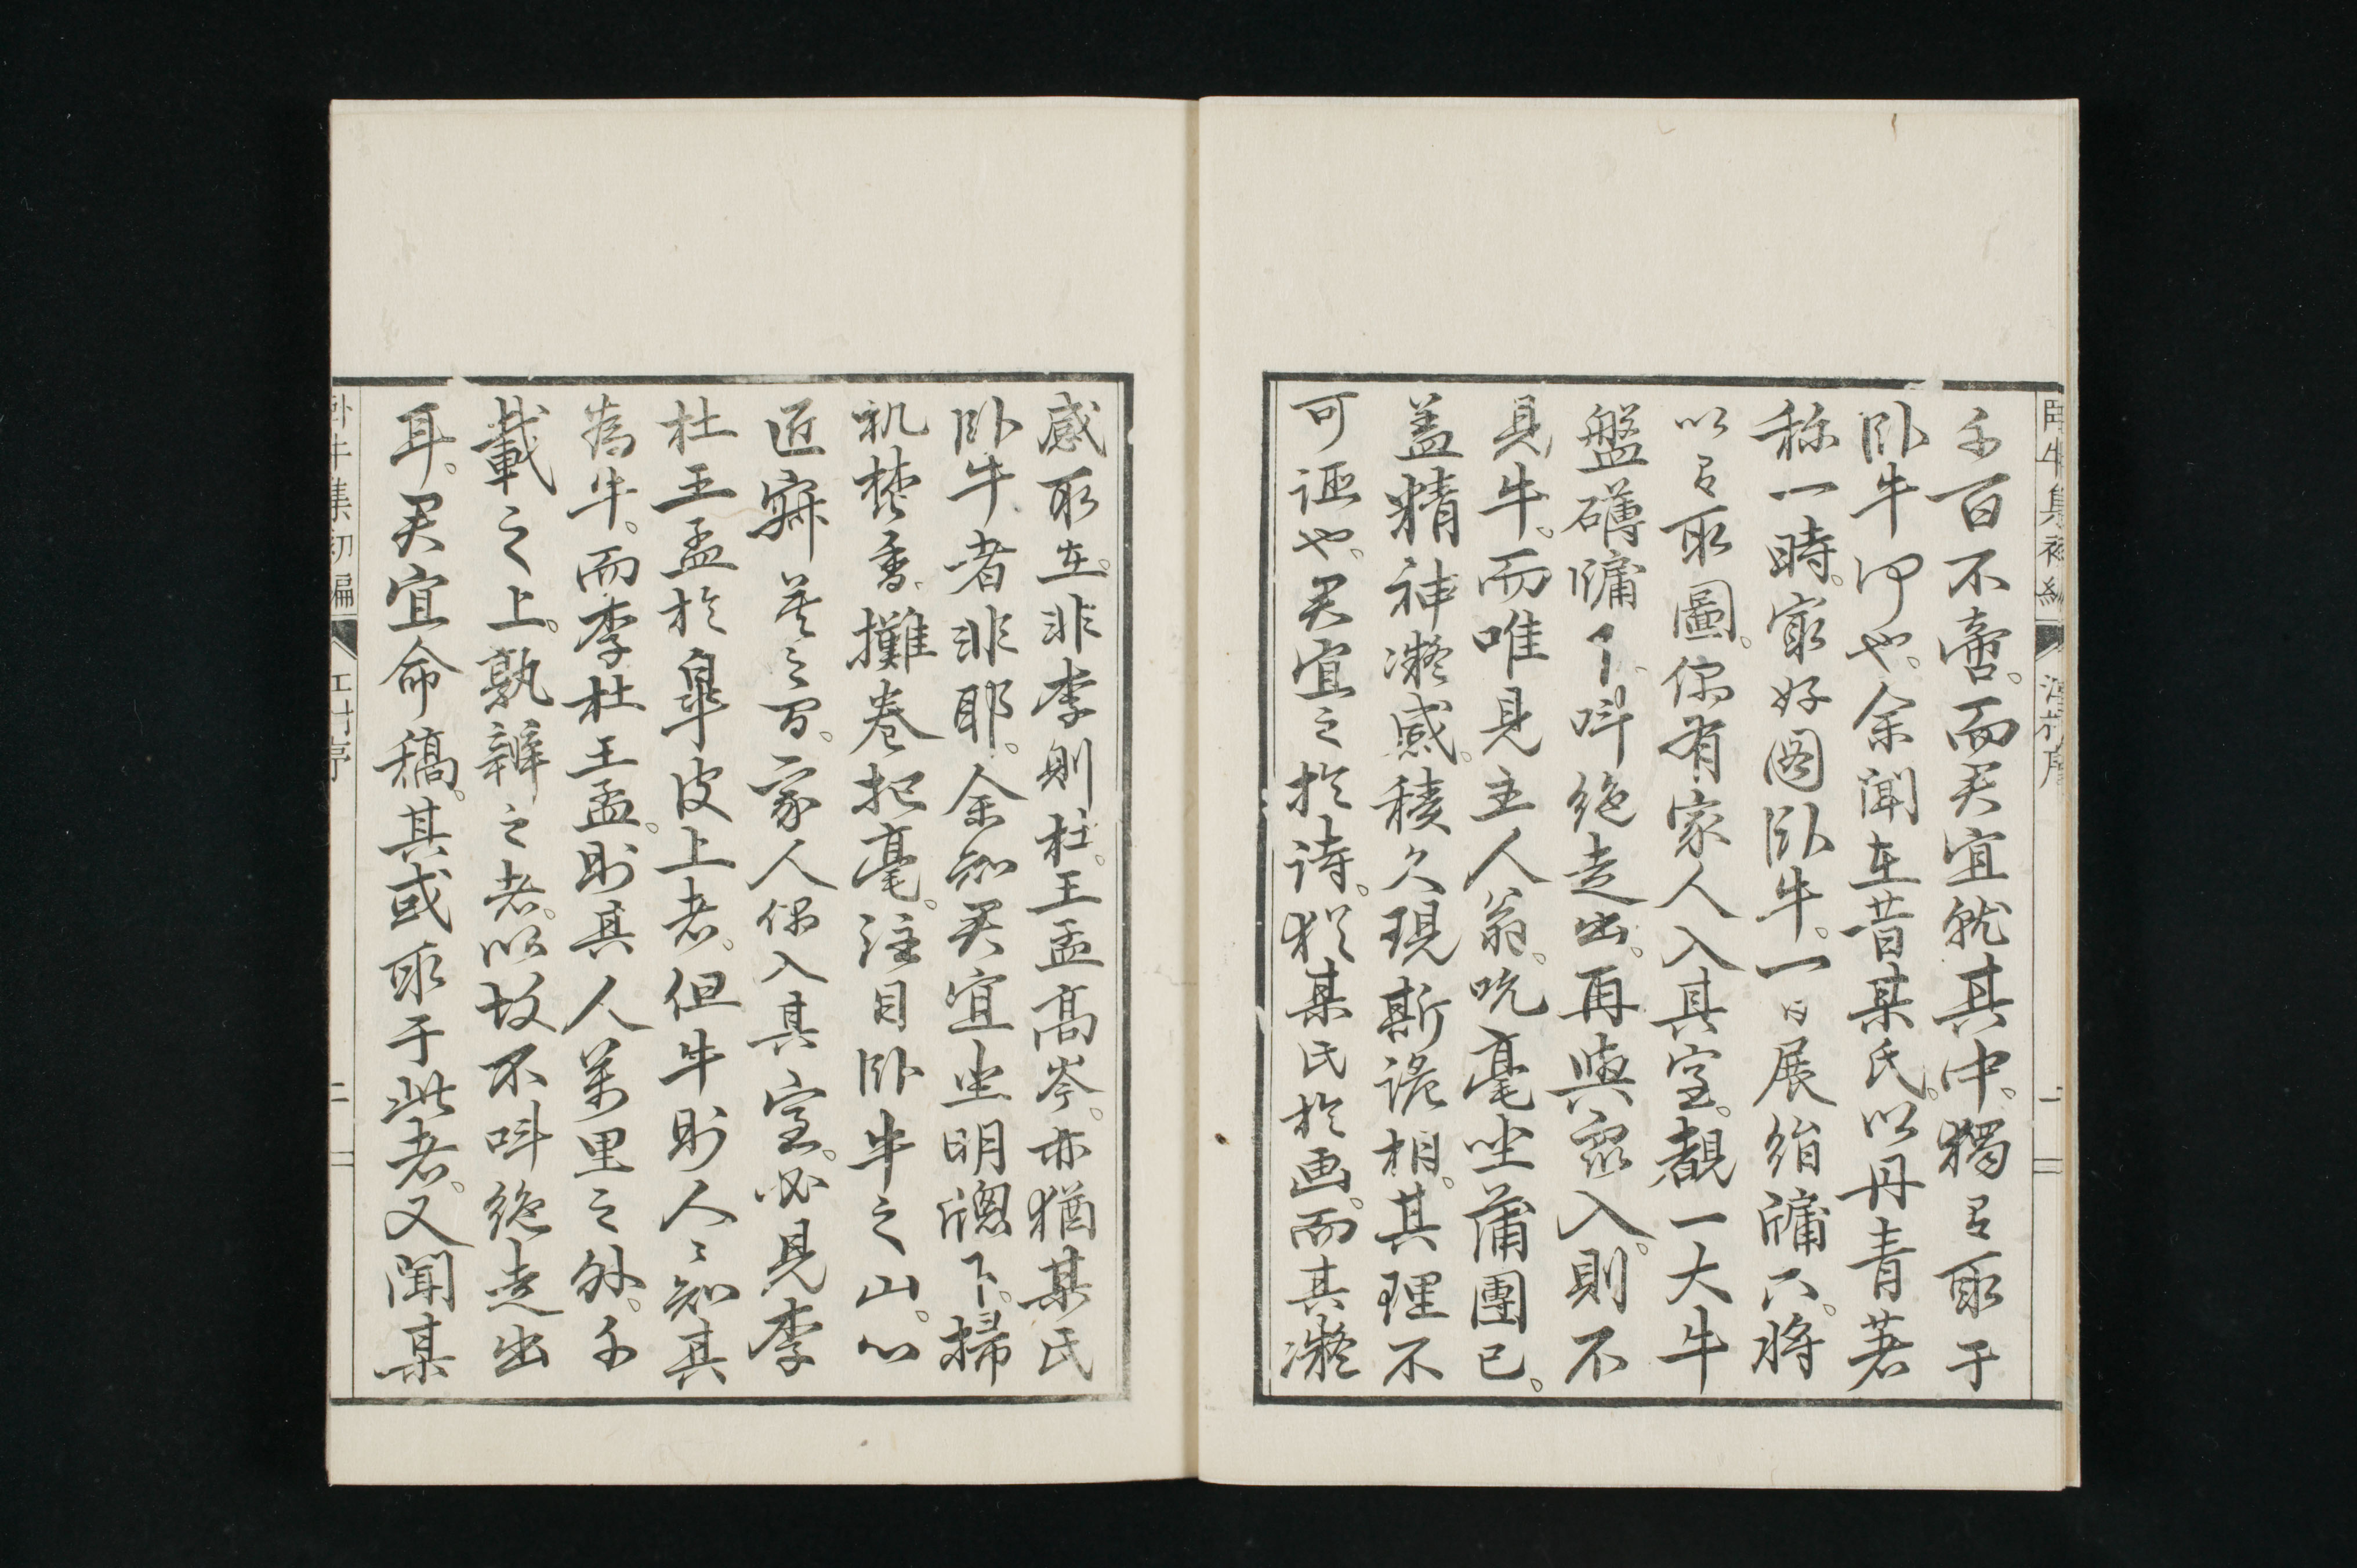 臥牛集初編 江村序 一
千百不啻。而君宜就其中。獨有取于
臥牛何也。余聞在昔某氏。以丹青著
称一時。最好図臥牛。一日展絹牖下。将
以有取圖。偶有家人入其室。覩一大牛
盤礴牖下。叫絶走出。再與衆入。則不
見牛。而唯見主人翁。吮毫坐蒲團已。
盖精神凝感。積久現斯詭相。其理不
可誣也。君宜之於詩。猶某氏於画。而其凝
感所在。非李則杜。王孟高岑。亦猶某氏
臥牛者非耶。余知君宜坐明牕下。掃
机焚香。攤巻把毫。注目臥牛之山。心
匠

家人偶入其室。必見李
杜王孟於皐皮上者。但牛則人〻知其
為牛。而李杜王孟。則其人萬里之外。千
載之上。孰辧之者。以故不叫絶走出
耳。君宜命稿。其或取于此者。又聞某
臥牛集初編 江村序 二